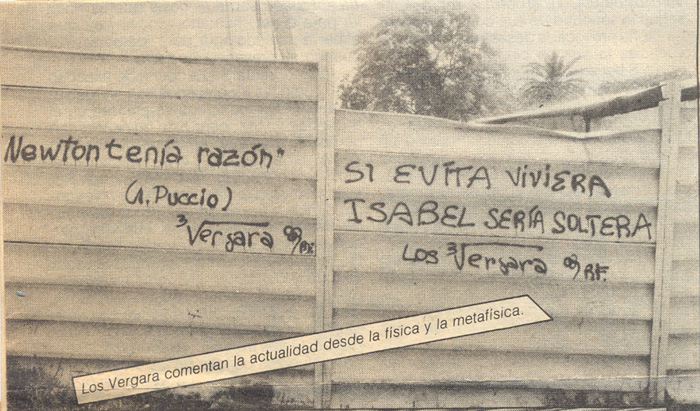 Newton tenía razón"
(A. Puccio)
3√Vergara
SI EVITA VIVIERA
ISABEL SERÍA SOLTERA
LOS 3√Vergara
Los Vergara comentan la actualidad desde la física y la metafísica.